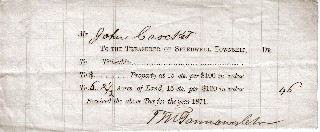 Mr John Crockett
To the Treasurer of Speedwell Township, Dr
To Titheable
To $ Property at 15 cts. per $100 in value
To 5 acres of Land, 15 cts. per $100 in value 46
Received the above Tax for the year 1871.